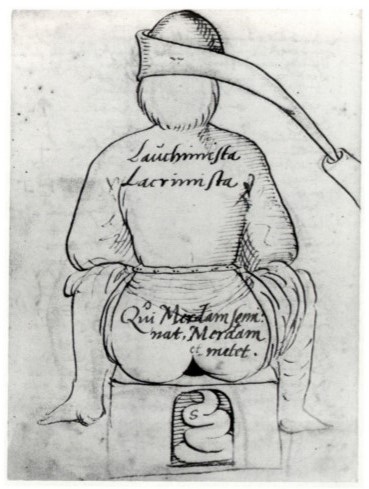 Lauchimista
Lacrimista
Qui Merdam semi:
nat, Merdam
et metet.
S